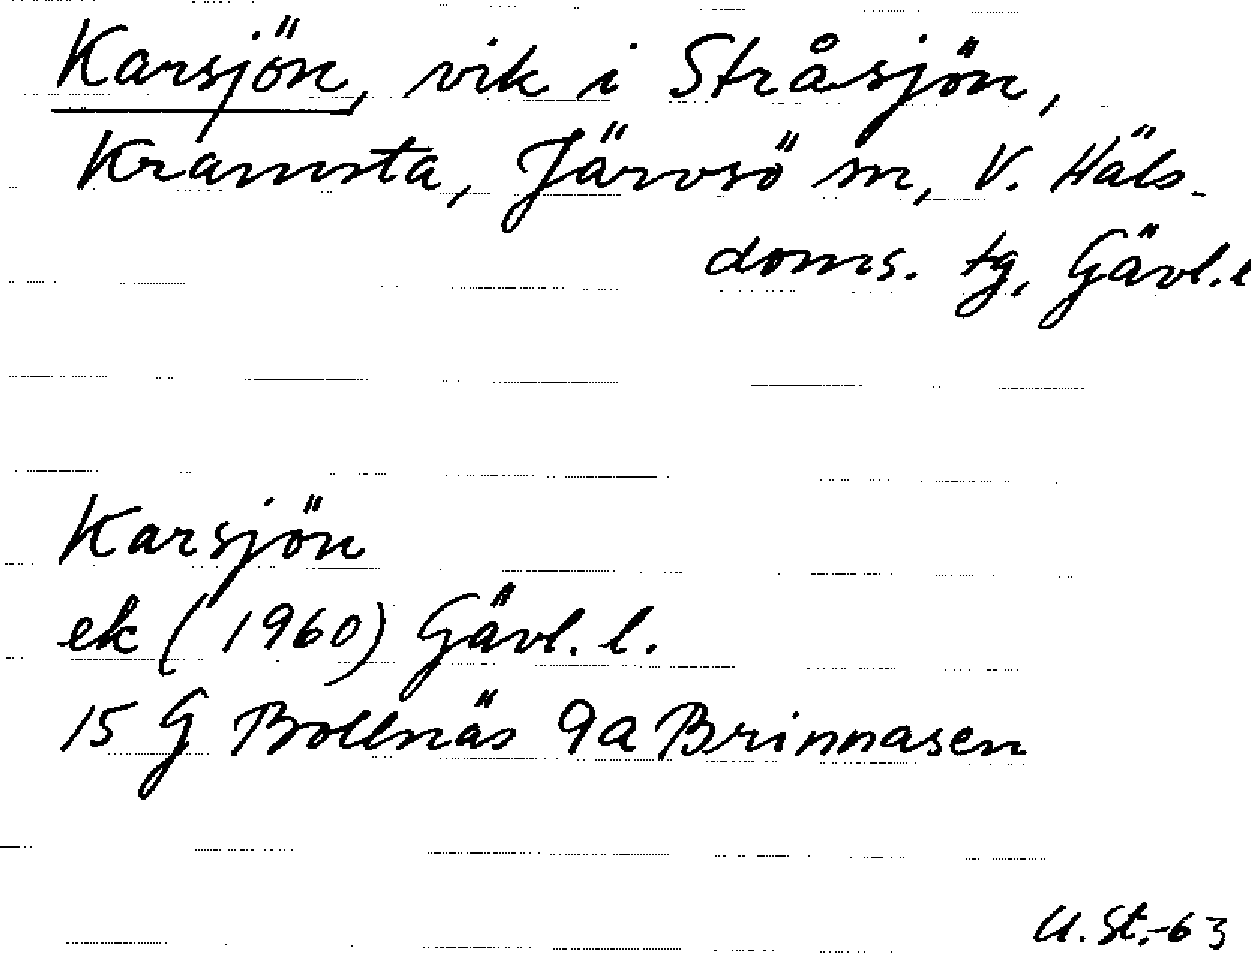 Karsjön, vik i Stråsjön,
Kramsta, Järvsö sn, V. Häls-
doms. tg, Gävl.l
Karsjön
ek (1960) Gävl. l.
15 G Bollnäs 9a Brinnåsen
U.St.-63